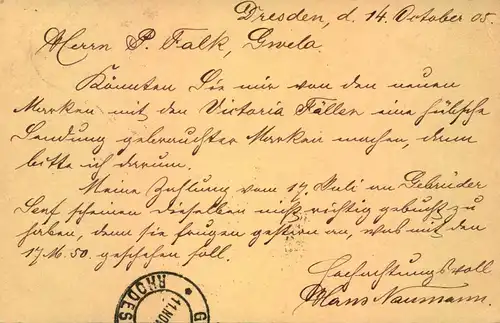 Dresden, d. 14. October 05.
Herrn P. Falk, Gwelo.
Könnten Sie mir von den neuen
Marken mit den Victoria Fällen eine hübsche
Sendung gebrauchter Marken machen, dann
bitte ich darum.
Meine Zahlung vom 17. Juli an Gebrüder
Senf scheinen dieselben nicht richtig gebucht zu
haben, denn sie frugen gestern an, was mit den
17 M. 50. geschehen soll.
Hochachtungsvoll
Hans Naumann.
RHODES
11 NOV
G